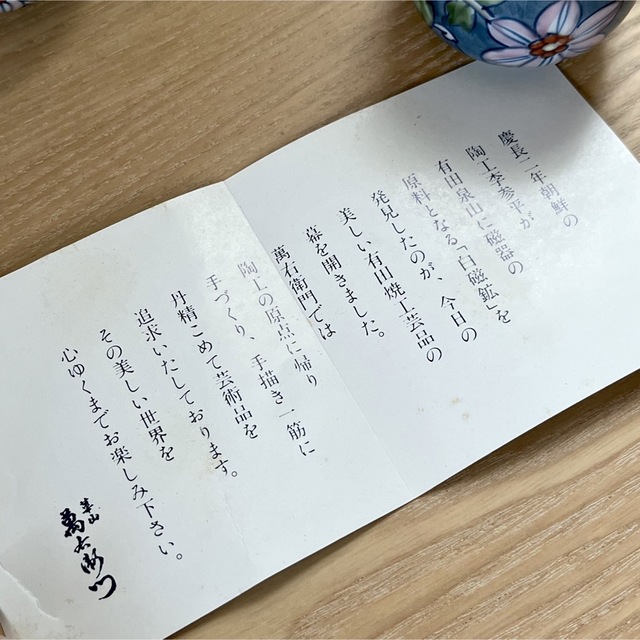 慶長二年朝鮮の
陶工李参平が
有田泉山に磁器の
原料となる「白磁鉱」を
発見したのが、今日の
美しい有田焼工芸品の
幕を開きました。
萬右衛門では
陶工の原点に帰り
手づくり、手描き一筋に
丹精こめて芸術品を
追求いたしております。
その美しい世界を
心ゆくまでお楽しみ下さい。
萬右衛門